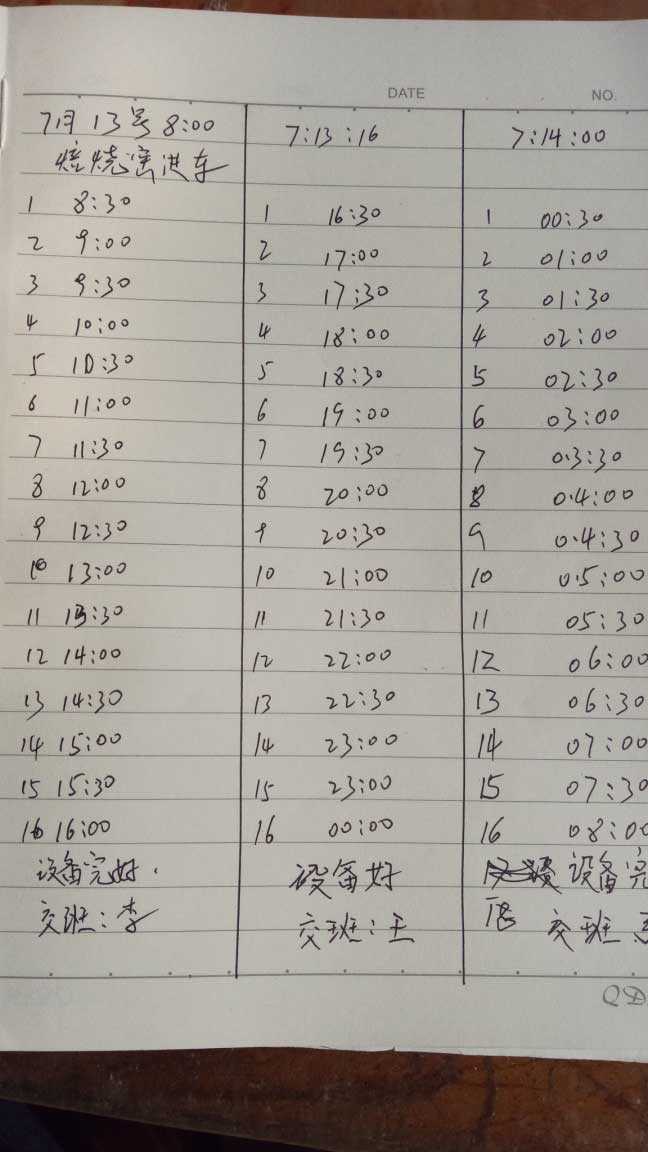 DATE
NO.
7月13号 8:00
焙烧窑进车
1 8:30
2 9:00
3 9:30
4 10:00
5 10:30
6 11:00
7 11:30
8 12:00
9 12:30
10 13:00
11 13:30
12 14:00
13 14:30
14 15:00
15 15:30
16 16:00
设备完好.
交班:李
7:13:16
1 16:30
2 17:00
3 17:30
4 18:00
5 18:30
6 19:00
7 19:30
8 20:00
9 20:30
10 21:00
11 21:30
12 22:00
13 22:30
14 23:00
15 23:00
16 00:00
设备好
交班:王
7:14:00
1 00:30
2 01:00
3 01:30
4 02:00
5 02:30
6 03:00
7 0.3:30
8 0.4:00
9 0.4:30
10 0.5:00
11 05:30
12 06:00
13 06:30
14 07:00
15 07:30
16 08:00
设备完
交班